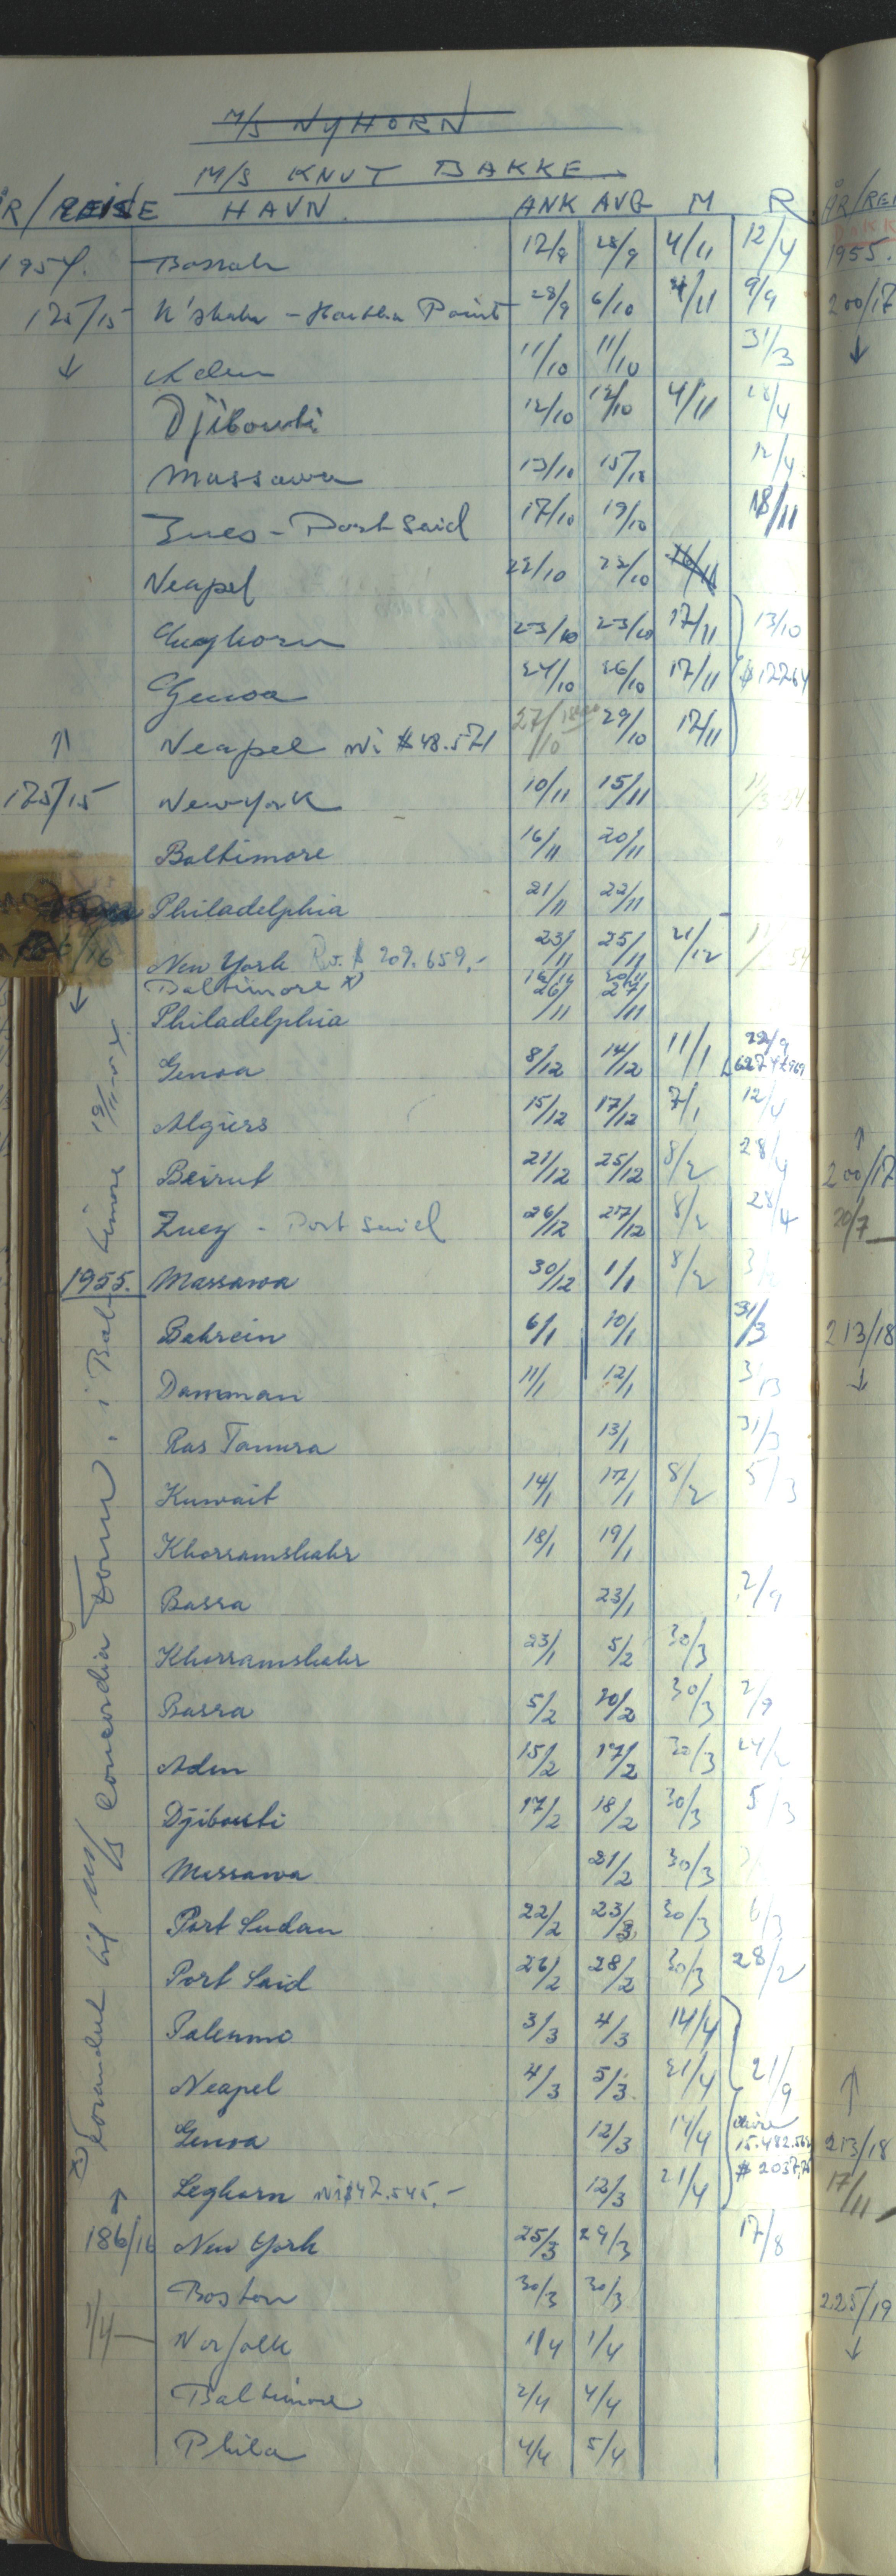 M/S NYHORN
M/S KNUT BAKKE
ÅR/REISE HAVN. ANK AVG M R
1954. Basrah 12/9 28/9 4/11 12/4
125/15 K'shahr - Point 28/9 6/10 4/11 9/9
↓ Aden 11/10 11/10 31/3
Djibouti 12/10 12/10 4/11 28/4
Massawa 13/10 15/10 12/4
Zues - Port Said 17/10 19/10 18/11
Neapel 22/10 22/10
Leghorn 23/10 23/10 17/11 13/10
Genoa 24/10 26/10 17/11 $ 12264
↑ Neapel $ 48.571 27/10 29/10 17/11
125/15 New York 10/11 15/11
Baltimore 16/11 20/11
Philadelphia 21/11 22/11
/16 New York $ 209.659,- 23/11 25/11 21/12
↓ Baltimore x) 16/11 20/11
Philadelphia 26/11 27/11
Genoa 8/12 14/12 11/1 22/9
Algiers 15/12 17/12 7/1 12/4
Beirut 21/12 25/12 8/2 28/4
Zuez - Port Said 26/12 27/12 8/2 28/4
1955. Massawa 30/12 1/1 8/2
Bahrein 6/1 10/1 31/3
Damman 11/1 12/1
Ras Tanura 13/1 31/3
Kuwait 14/1 17/1 8/2 5/3
Khorramshahr 18/1 19/1
Basra 23/1 2/9
Khorramshahr 23/1 5/2 30/3
Basra 5/2 10/2 30/3 2/9
Aden 15/2 17/2 30/3 24/2
Djibouti 17/2 18/2 30/3 5/3
Massawa 21/2 30/3
Port Sudan 22/2 23/3 30/3 6/3
Port Said 26/2 28/2 30/3 28/2
Palermo 3/3 4/3 14/4
Neapel 4/3 5/3 21/4 21/9
Genoa 12/3 14/4
↑ Leghorn $47.545,- 12/3 21/4
186/16 New York 25/3 29/3 17/8
Boston 30/3 30/3
1/4 Norfolk 1/4 1/4
Baltimore 2/4 4/4
Phila 4/4 5/4
x) til m/s Concordia i Baltimore
ÅR/REI
1955.
200/17
↓
↑
200/17
20/7
213/18
↓
↑
213/18
17/11
225/19
↓